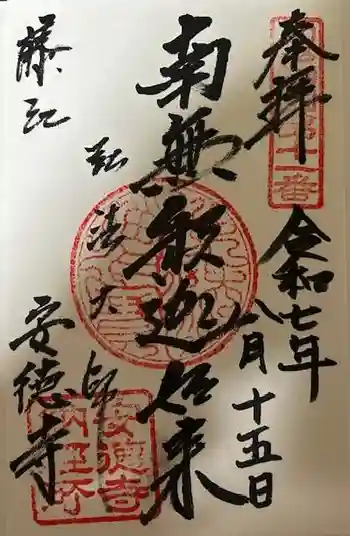 奉拝
令和七年
八月十五日
南無釈迦如来
弘法大師
藤江
安徳寺
第十一番
安徳寺